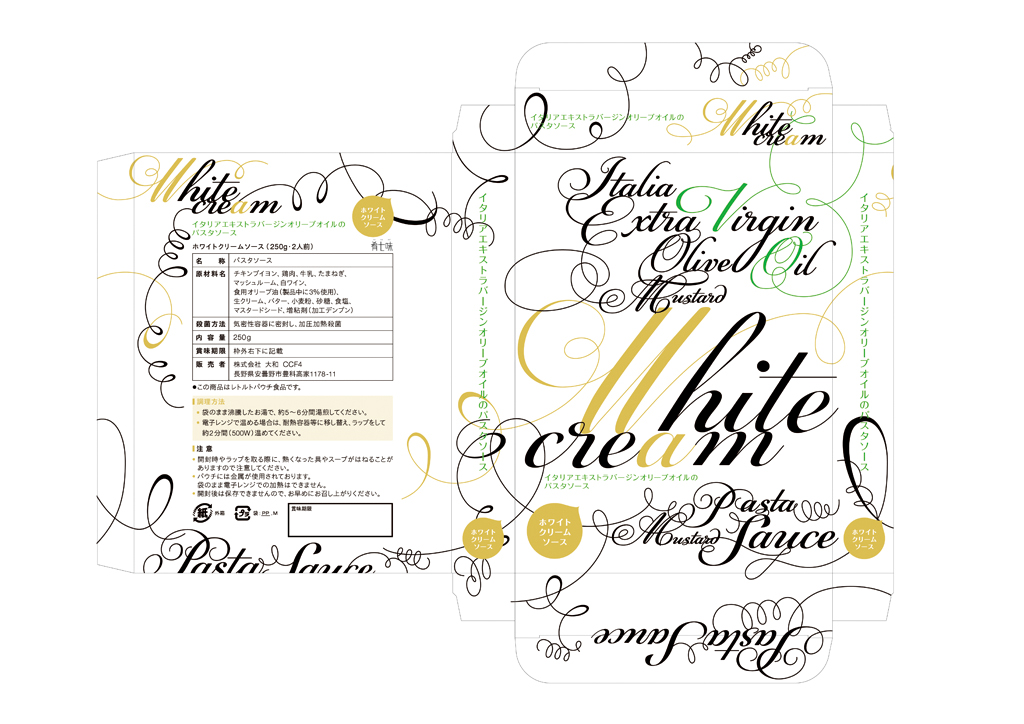 White
cream
イタリアエキストラバージンオリーブオイルの
パスタソース
ホワイト
クリーム
ソース
ホワイトクリームソース(250g・2人前)
名 称 パスタソース
原材料名 チキンブイヨン、鶏肉、牛乳、たまねぎ、
マッシュルーム、白ワイン、
食用オリーブ油(製品中に3%使用)、
生クリーム、バター、小麦粉、砂糖、食塩、
マスタードシード、増粘剤(加工デンプン)
殺菌方法 気密性容器に密封し、加圧加熱殺菌
内 容 量 250g
賞味期限 枠外右下に記載
販 売 者 株式会社 大和 CCF4
長野県安曇野市豊科高家1178-11
●この商品はレトルトパウチ食品です。
調理方法
• 袋のまま沸騰したお湯で、約5〜6分間湯煎してください。
• 電子レンジで温める場合は、耐熱容器等に移し替え、ラップをして
約2分間(500W)温めてください。
注 意
• 開封時やラップを取る際に、熱くなった具やスープがはねることが
ありますので注意してください。
• パウチには金属が使用されております。
袋のまま電子レンジでの加熱はできません。
• 開封後は保存できませんので、お早めにお召し上がりください。
紙 外箱
プラ 袋:PP,M
賞味期限
Pasta Sauce
イタリアエキストラバージンオリーブオイルのパスタソース
ホワイト
クリーム
ソース
イタリアエキストラバージンオリーブオイルの
パスタソース
White
cream
Italia
Extra Virgin
Olive Oil
Mustard
White
cream
イタリアエキストラバージンオリーブオイルの
パスタソース
ホワイト
クリーム
ソース
Pasta
Mustard Sauce
イタリアエキストラバージンオリーブオイルのパスタソース
ホワイト
クリーム
ソース
Pasta Sauce